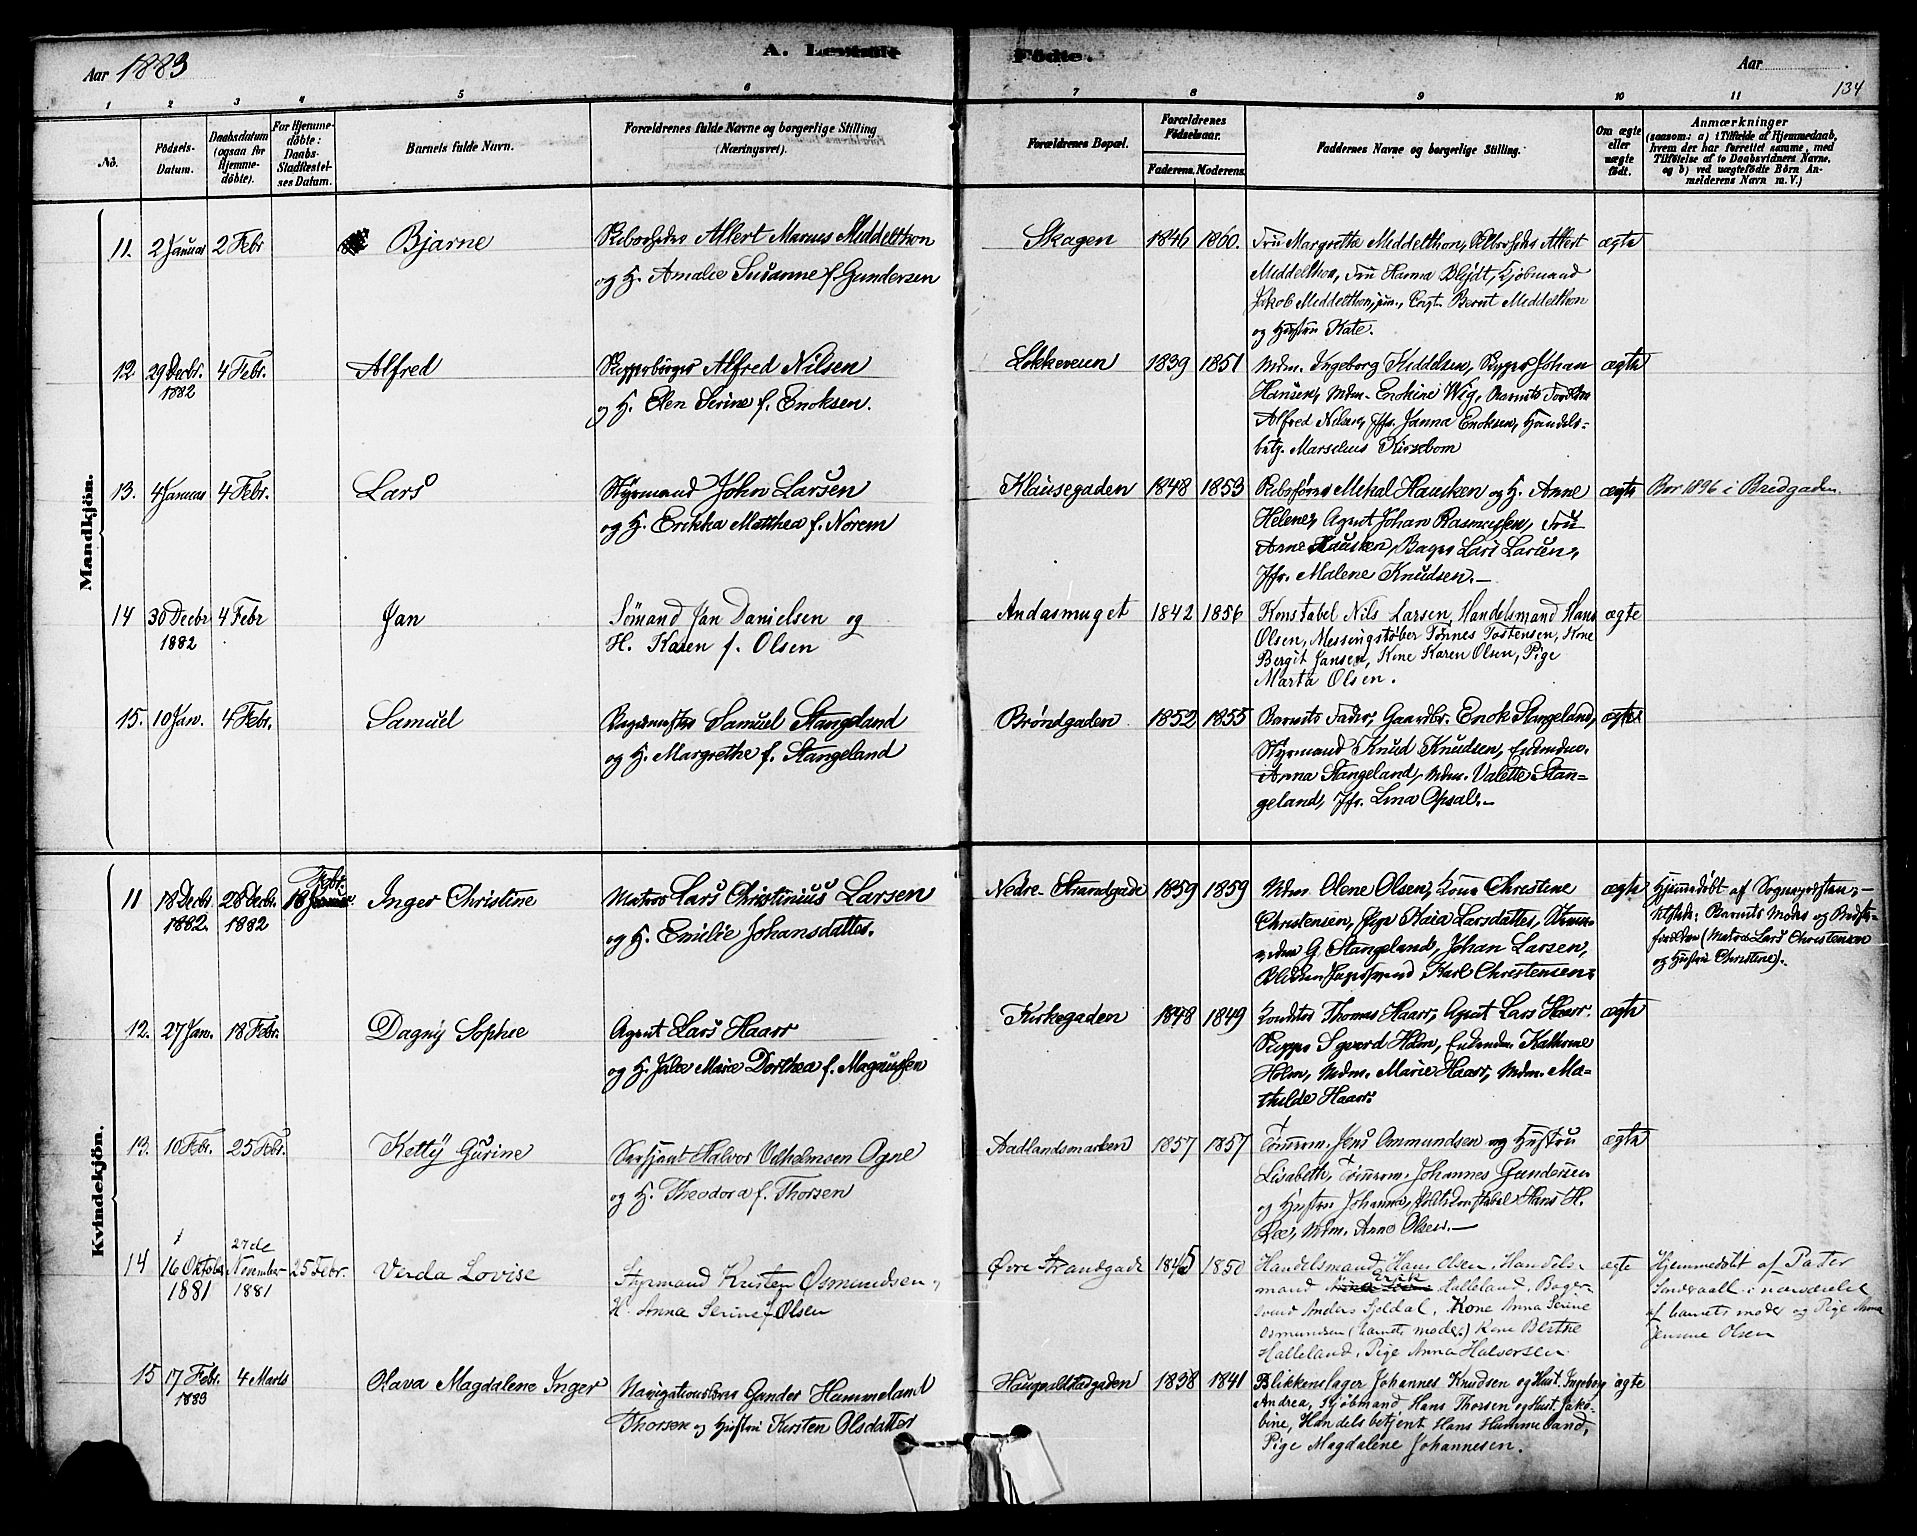 Aar 1883
A. Levende
Fødte.
Aar
134
1 2 3 4 5 6 7 8 9 10 11
No.
Fødsels-
Datum.
Daabsdatum
(ogsaa for
Hjemme-
døbte).
For Hjemme-
døbte:
Daabs-
Stadfæstel-
ses Datum.
Barnets fulde Navn.
Forældrenes fulde Navne og borgerlige Stilling
(Næringsvei).
Forældrenes Bopæl.
Forældrenes
Fødselsaar.
Faderens. Moderens.
Faddernes Navne og borgerlige Stilling.
Om ægte
eller
uægte
født.
Anmærkninger
(saasom: a) i Tilfælde af Hjemmedaab,
hvem der har forrettet samme, med
Tilføielse af to Daabsvidners Navne,
og b) ved uægtefødte Børn An-
melderens Navn m. V.)
Mandkjön.
11. 2 Januar 2 Febr Bjarne
Allert Marius Middelthon
og H. Amalie Susanne f. Gundersen
Skagen 1846 1860.
Fru Margrethe Middelthon, Allert
Middelthon, Fru Hanna Blÿdt, Kjøbmand
Jakob Middelthon, jun., Berut Middelthon
og Hustru Kate.
ægte
12 29 Decbr. 4 Febr. Alfred
1882
Skipperborger Alfred Nilsen
og H. Elen Serine f. Enoksen.
Løkkeveien 1839 1851
Mdm. Ingeborg Kiddelsen, Skipper Johan
Hansen, Mdm. Enokine Wig, Barnets Fader
Alfred Nilsen, Jfr. Janna Enoksen, Handels-
betj. Marselius Kirsebom
ægte
13. 4 Januar 4 Febr. Lars
Styrmand John Larsen
og H. Erikka Matthea f. Norem
Klausegaden 1848 1853
Mikal Hausken og H. Anne
Helene, Agent Johan Rasmussen, Fru
Anne Hausken, Bager Lars Larsen,
Jfr. Malene Knudsen.
ægte
Bor 1896 i Bredgaden.
14 30 Decbr 4 Febr Jan
1882
Sømand Jan Danielsen og
H. Karen f. Olsen
Andasmuget 1842 1856
Konstabel Nils Larsen, Handelsmand Hans
Olsen, Messingstøber Tønnes Tostensen, Kone
Bergit Jansen, Kone Karen Olsen, Pige
Marta Olsen.
ægte
15. 10 Jan. 4 Febr. Samuel
Bagermester Samuel Stangeland
og H. Margrethe f. Stangeland
Brøndgaden 1852 1855
Barnets Fader, Gaardbr. Enok Stangeland,
Styrmand Knud Knudsen, Enkemdm.
Anna Stangeland, Mdm. Valette Stan-
geland, Jfr. Lina Opsal.
ægte
Kvindekjön.
11 18 Decbr. 28 Decbr. 18 Febr. Inger Christine
1882. 1882
Matros Lars Christinius Larsen
og H. Emilie Johansdatter.
Nedre Strandgade 1859 1859
Mdm. Olene Olsen, Kone Christine
Christensen, Pige Kaia Larsdatter,
G. Stangeland, Johan Larsen,
Karl Christensen
ægte
Hjemmedøbt af Sognepresten;
Barnets Moder og Bedste-
forældre (Matros Lars Christensen
og Hustru Christine).
12. 27 Jan. 18 Febr. Dagny Sophie
Agent Lars Haarr
og H. Jalie Marie Dorthea f. Magnussen
Kirkegaden 1848 1849
Konditor Thomas Haarr, Agent Lars Haarr
Skipper Sgverd Holm, Enkemdm. Kathrine
Holm, Mdm. Marie Haarr, Mdm. Ma-
thilde Haarr.
ægte
13. 10 Febr. 25 Febr. Ketty Gurine
Sersjant Halvor Velhelmsen Ogne
og H. Theodora f. Thorsen
Aadlandsmarken 1857 1857
Tømrm. Jens Ommundsen og Hustru
Lisabeth, Tømrm. Johannes Gundersen
og Hustru Johanna, Politikonstabel Hans H.
Roe, Mdm. Anne Olsen.
ægte
14 16 Oktober 27de November 25 Febr. Verda Lovise
1881 1881
Styrmand Kristen Osmundsen
H. Anna Serine f. Olsen
Øvre Strandgade 1845 1850
Handelsmand Hans Olsen, Handels-
mand Erik Halleland, Bager
svend Anders Sjeldal, Kone Anna Serine
Osmundsen (barnets moder) Kone Berthe
Halleland, Pige Anna Halvorsen
ægte
Hjemmedøbt af Pater
i nærværelse
af barnets moder og Pige Anna
Jensine Olsen
15 17 Febr. 4 Marts Olava Magdalene Inger
1883
Navigationslærer Gunder Hammeland
Thorsen og Hustru Kirsten Olsdatter
Haugvaldstadgaden 1838 1841
Blikkenslager Johannes Knudsen og Hust. Ingeborg
Andrea, Kjøbmand Hans Thorsen og Hust. Jako-
bine, Handelsbetjent Hans Hummeland,
Pige Magdalene Johannesen.
ægte